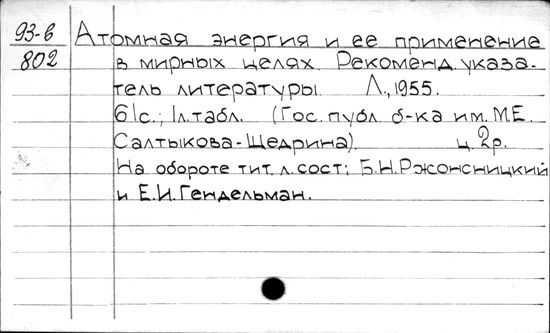 93-6 Атомная энергия и ее применение
802 в мирных целях. Рекоменд. указа-
тель литературы. Л., 1955.
61с.; 1л.табл. (Гос. публ. б-ка им. М.Е.
Салтыкова-Щедрина). ц. 2р.
На обороте тит. л. сост: Б.Н.Ржонсницкий
и Е.И.Гендельман.